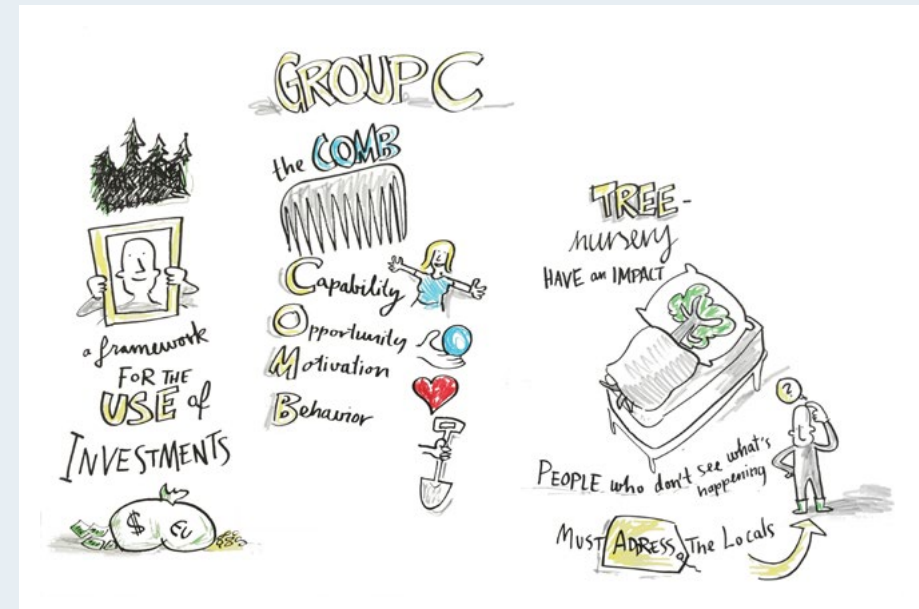 GROUP C
a framework
FOR THE
USE of
INVESTMENTS
$ EU
the COMB
Capability
Opportunity
Motivation
Behavior
TREE-
nursery
HAVE an IMPACT
?
PEOPLE who don't see what's
happening
MUST ADRESS The Locals